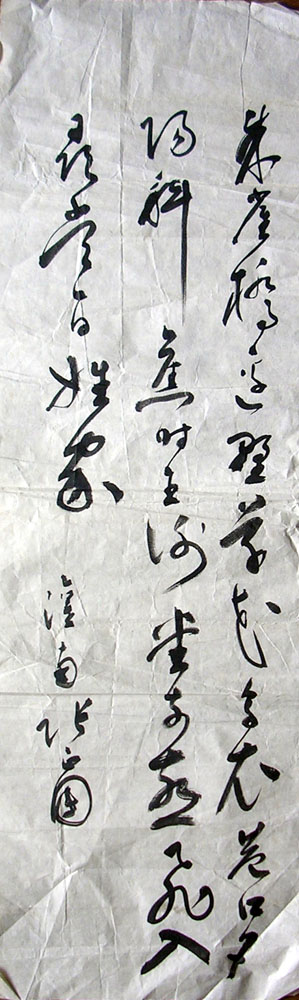 朱雀橋邊野草花烏衣巷口夕
陽斜舊时王谢堂前燕飛入
尋常百姓家 淮南張